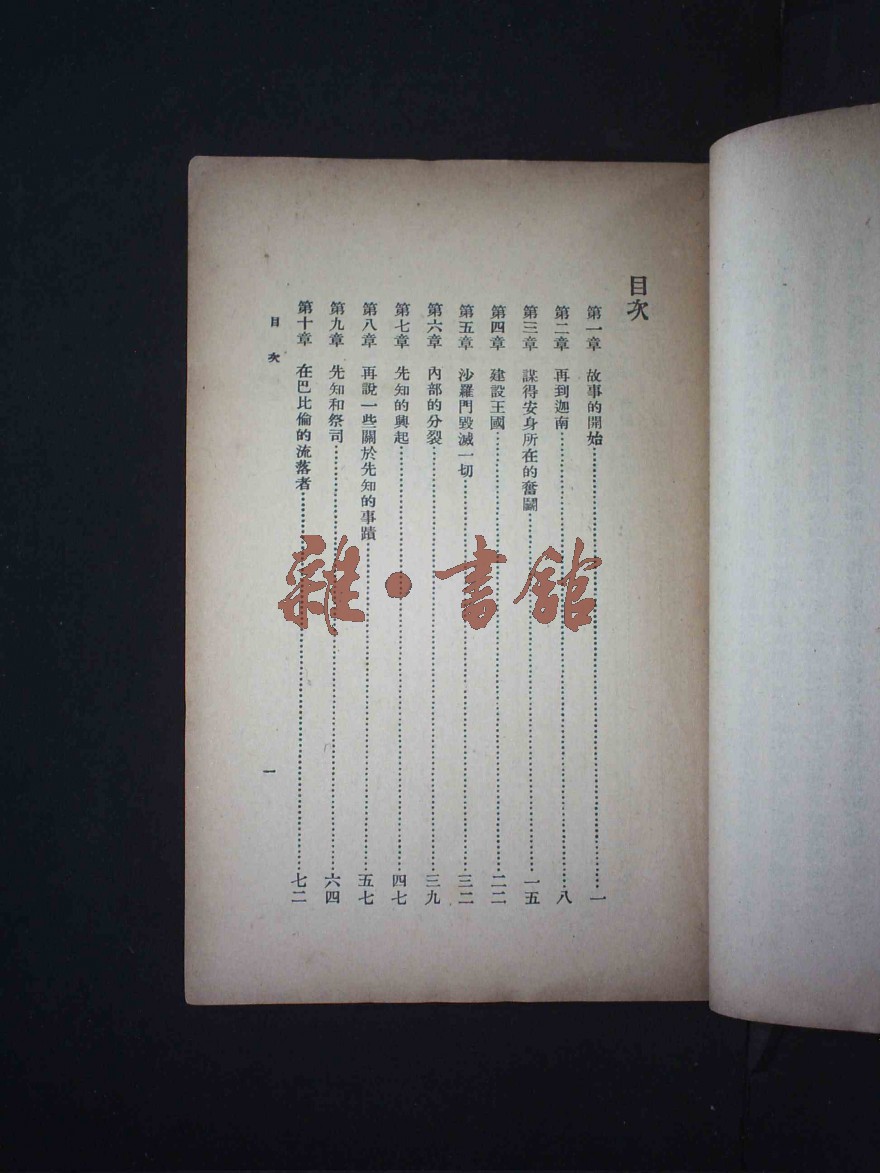 目次
第一章 故事的開始……一
第二章 再到迦南……八
第三章 謀得安身所在的奮鬭……一五
第四章 建設王國……二二
第五章 沙羅門毀滅一切……三二
第六章 內部的分裂……三九
第七章 先知的興起……四七
第八章 再說一些關於先知的事蹟……五七
第九章 先知和祭司……六四
第十章 在巴比倫的流落者……七二
目次
一
雜·書館